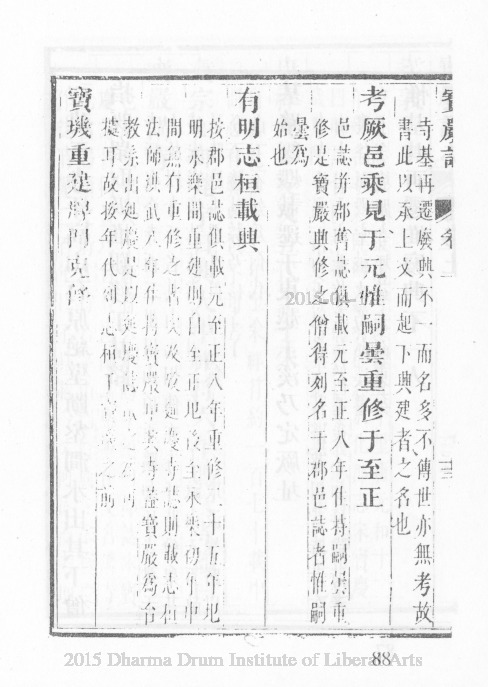 寶嚴記 卷上 十三
寺基再遷廢興不一而名多不傳世亦無考故
書此以承上文而起下興建者之名也
考厥邑乘見于元惟嗣曇重修于至正
邑誌并郡舊誌俱載元至正八年住持嗣曇重
修是寶嚴興修之僧得列名于郡邑誌者惟嗣
曇爲
始也
有明志桓載興
按郡邑誌俱載元至正八年重修二十五年圮
明永樂間重建則自至正圮後至永樂初年中
間無有重修之者 及 延慶寺誌則載志桓
法師洪武八年住持寶嚴 寺蓋寶嚴爲台
教 出延慶是以 慶誌
據耳故按年代列志桓于 之前
寶璣重建 門克修
2015-04-
88
2015 Dharma Drum Institute of Liberal Arts